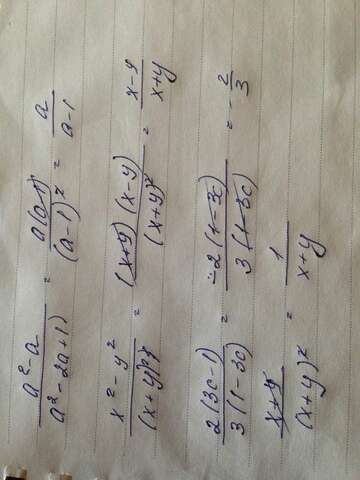 a² - a / a² - 2a + 1) = a(a-1) / (a-1)² = a / a-1
x² - y² / (x+y)² = (x+y)(x-y) / (x+y)² = x-y / x+y
2(3c-1) / 3(1-3c) = -2(1-3c) / 3(1-3c) = -2/3
x+y / (x+y)² = 1 / x+y